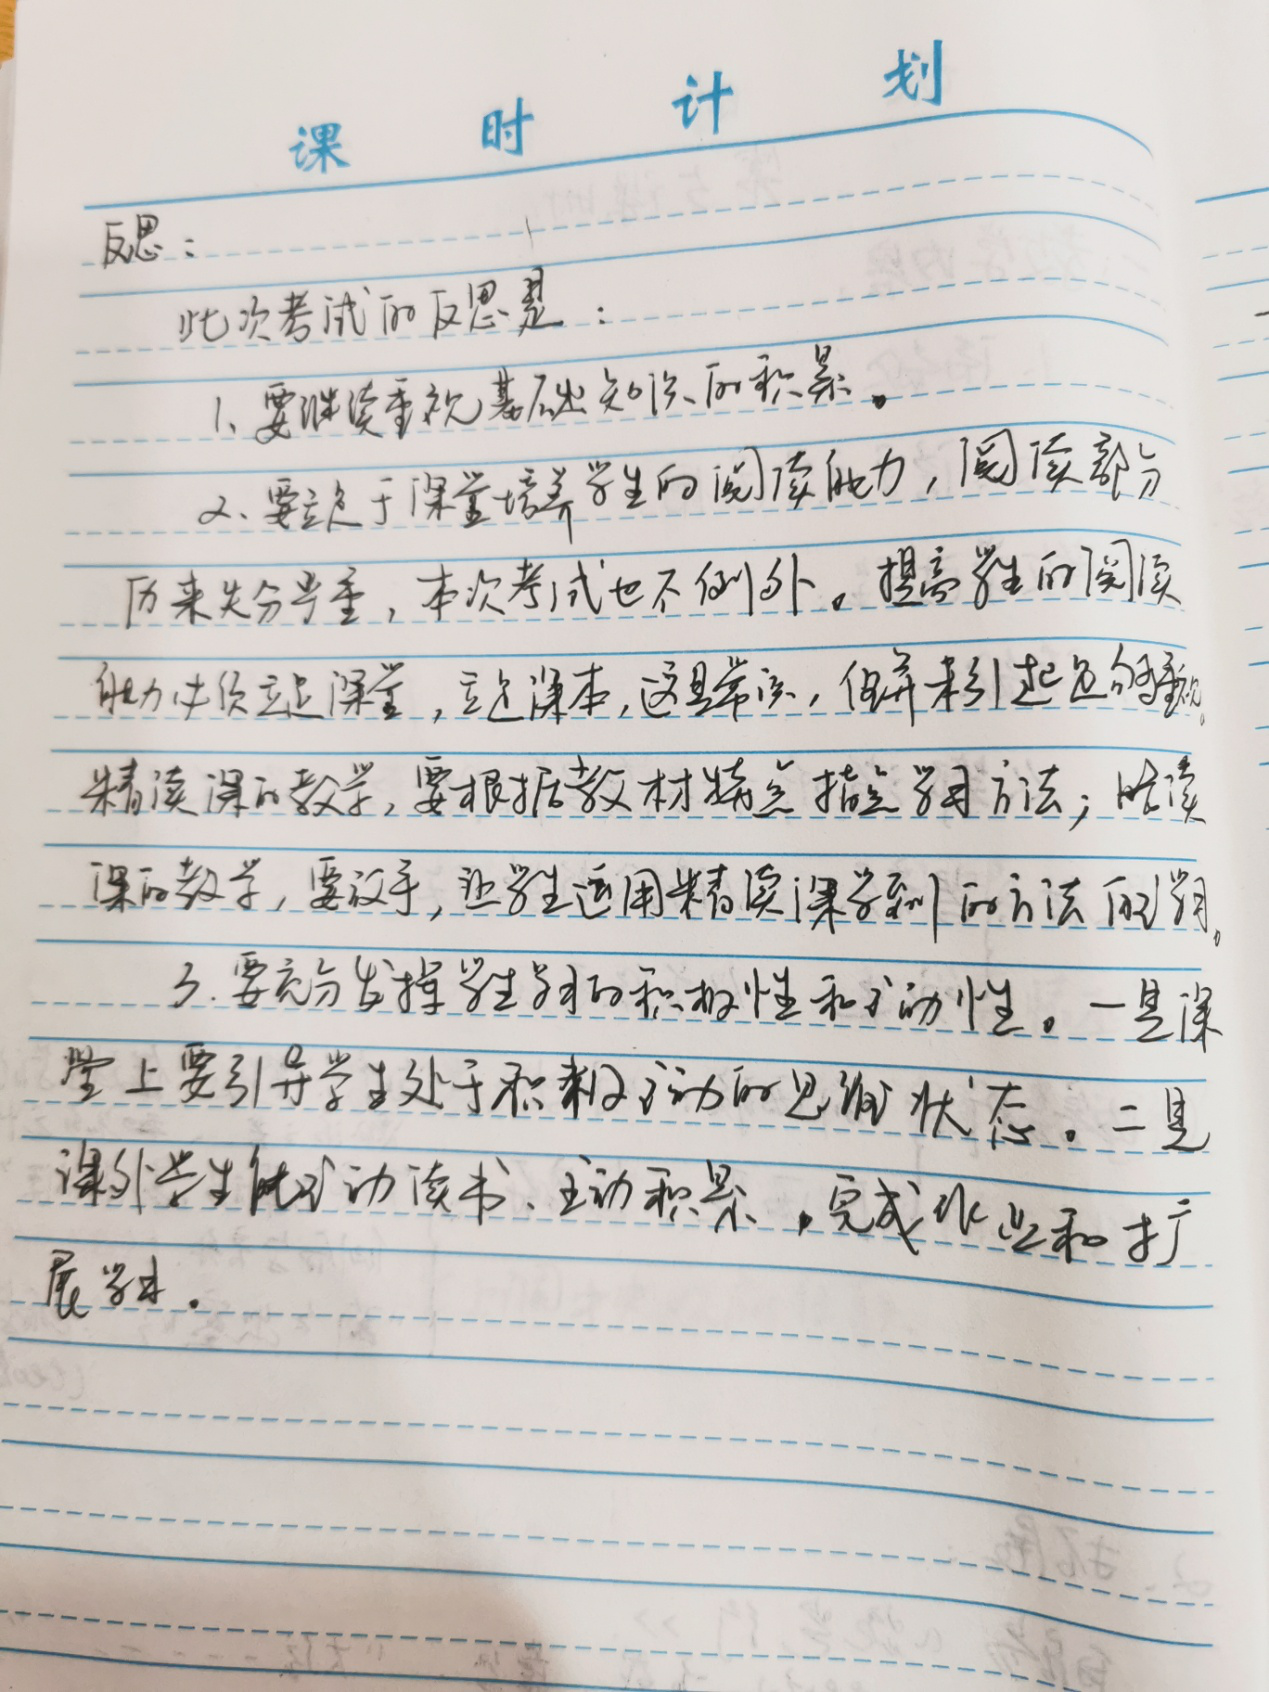 课时计划
反思：
此次考试的反思是：
1、要继续重视基础知识的积累。
2、要立足于课堂培养学生的阅读能力，阅读部分
历来失分严重，本次考试也不例外。提高学生的阅读
能力必须立足课堂，立足课本，这是常识，但并未引起足够重视。
精读课的教学，要根据教材特点指点学习方法；略读
课的教学，要放手，让学生运用精读课学到的方法自学。
3.要充分发挥学生学习的积极性和主动性。一是课
堂上要引导学生处于积极主动的思维状态。二是
课外学生能主动读书、主动积累，完成作业和扩
展学习.